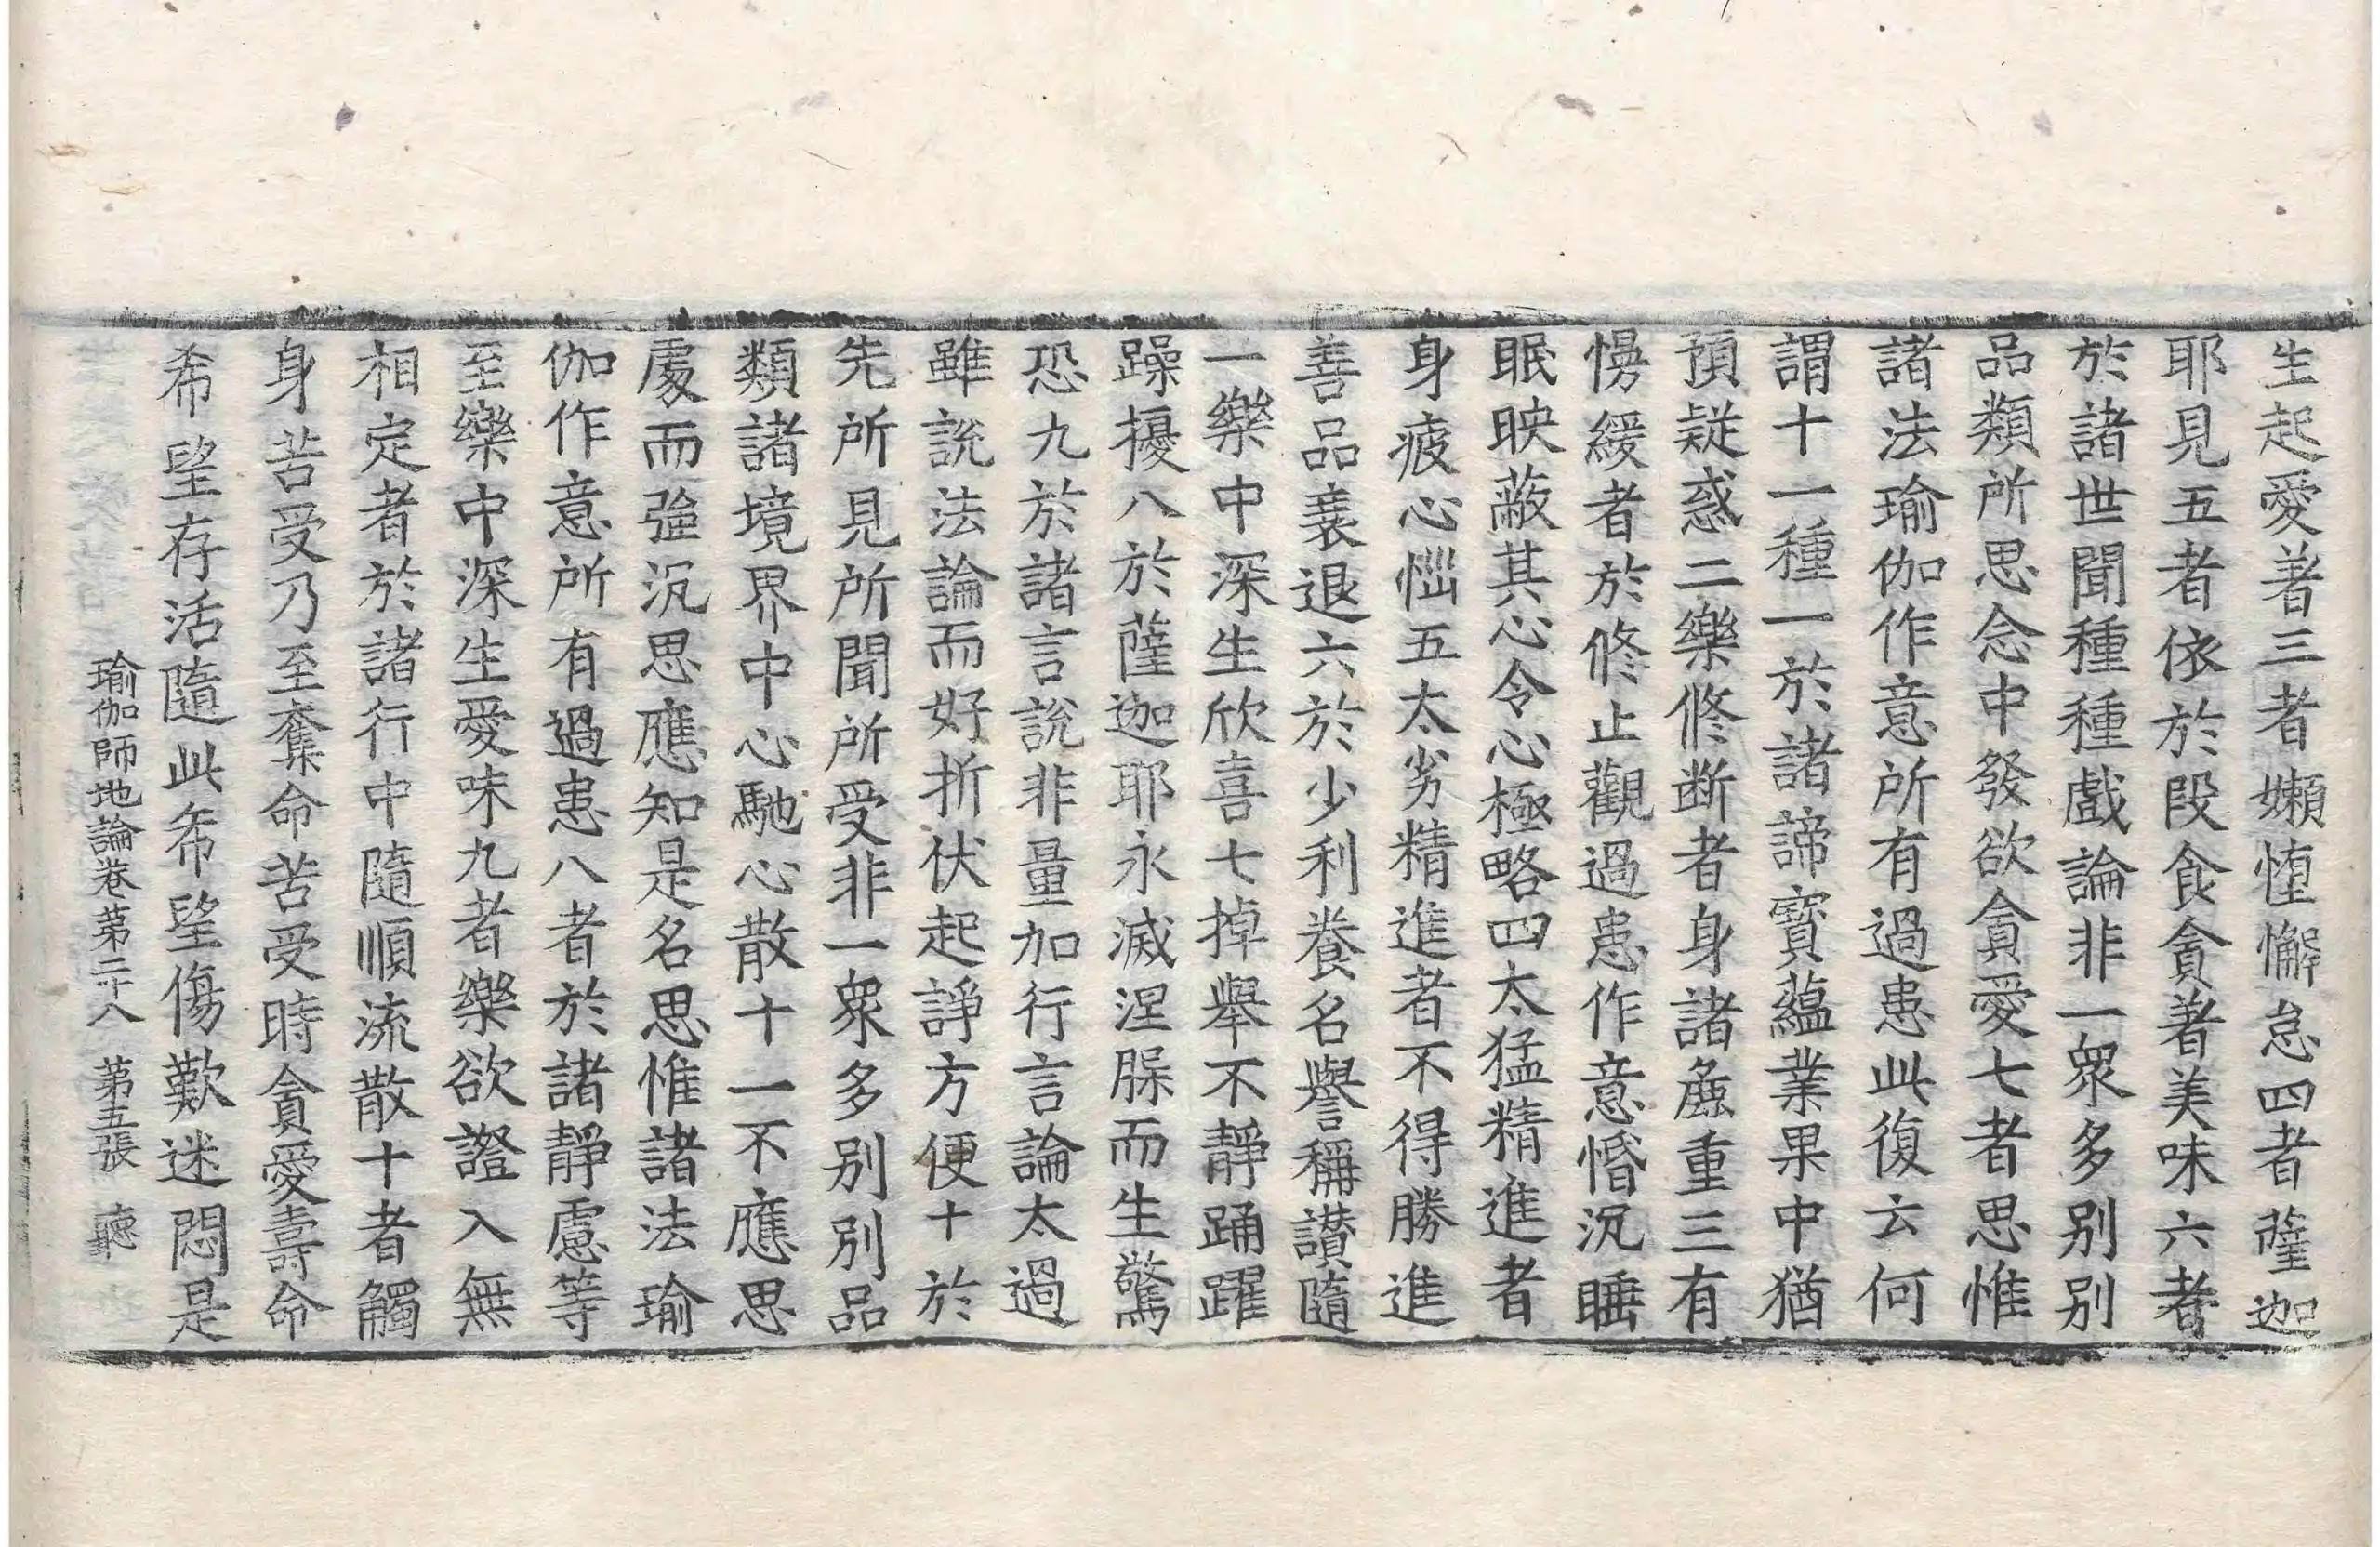 生起愛著三者嬾惰懈怠四者薩迦
耶見五者依於段食貪著美味六者
於諸世間種種戲論非一衆多别别
品類所思念中發欲貪愛七者思惟
諸法瑜伽作意所有過患此復云何
謂十一種一於諸諦寳藴業果中猶
預疑惑二樂修断者身諸麁重三有
慢緩者於修止觀過患作意惛沉睡
眠映蔽其心令心極略四太猛精進者
身疲心惱五太劣精進者不得勝進
善品衰退六於少利養名譽稱讃隨
一樂中深生欣喜七掉舉不静踊躍
躁擾八於薩迦耶永滅涅槃而生驚
恐九於諸言說非量加行言論太過
雖說法論而好折伏起諍方便十於
先所見所聞所受非一衆多别别品
類諸境界中心馳心散十一不應思
處而強沉思應知是名思惟諸法瑜
伽作意所有過患八者於諸静慮等
至樂中深生愛味九者樂欲證入無
相定者於諸行中隨順流散十者觸
身苦受乃至奪命苦受時貪愛壽命
希望存活隨此希望傷歎迷悶是
瑜伽師地論卷第二十八 第五張 聽